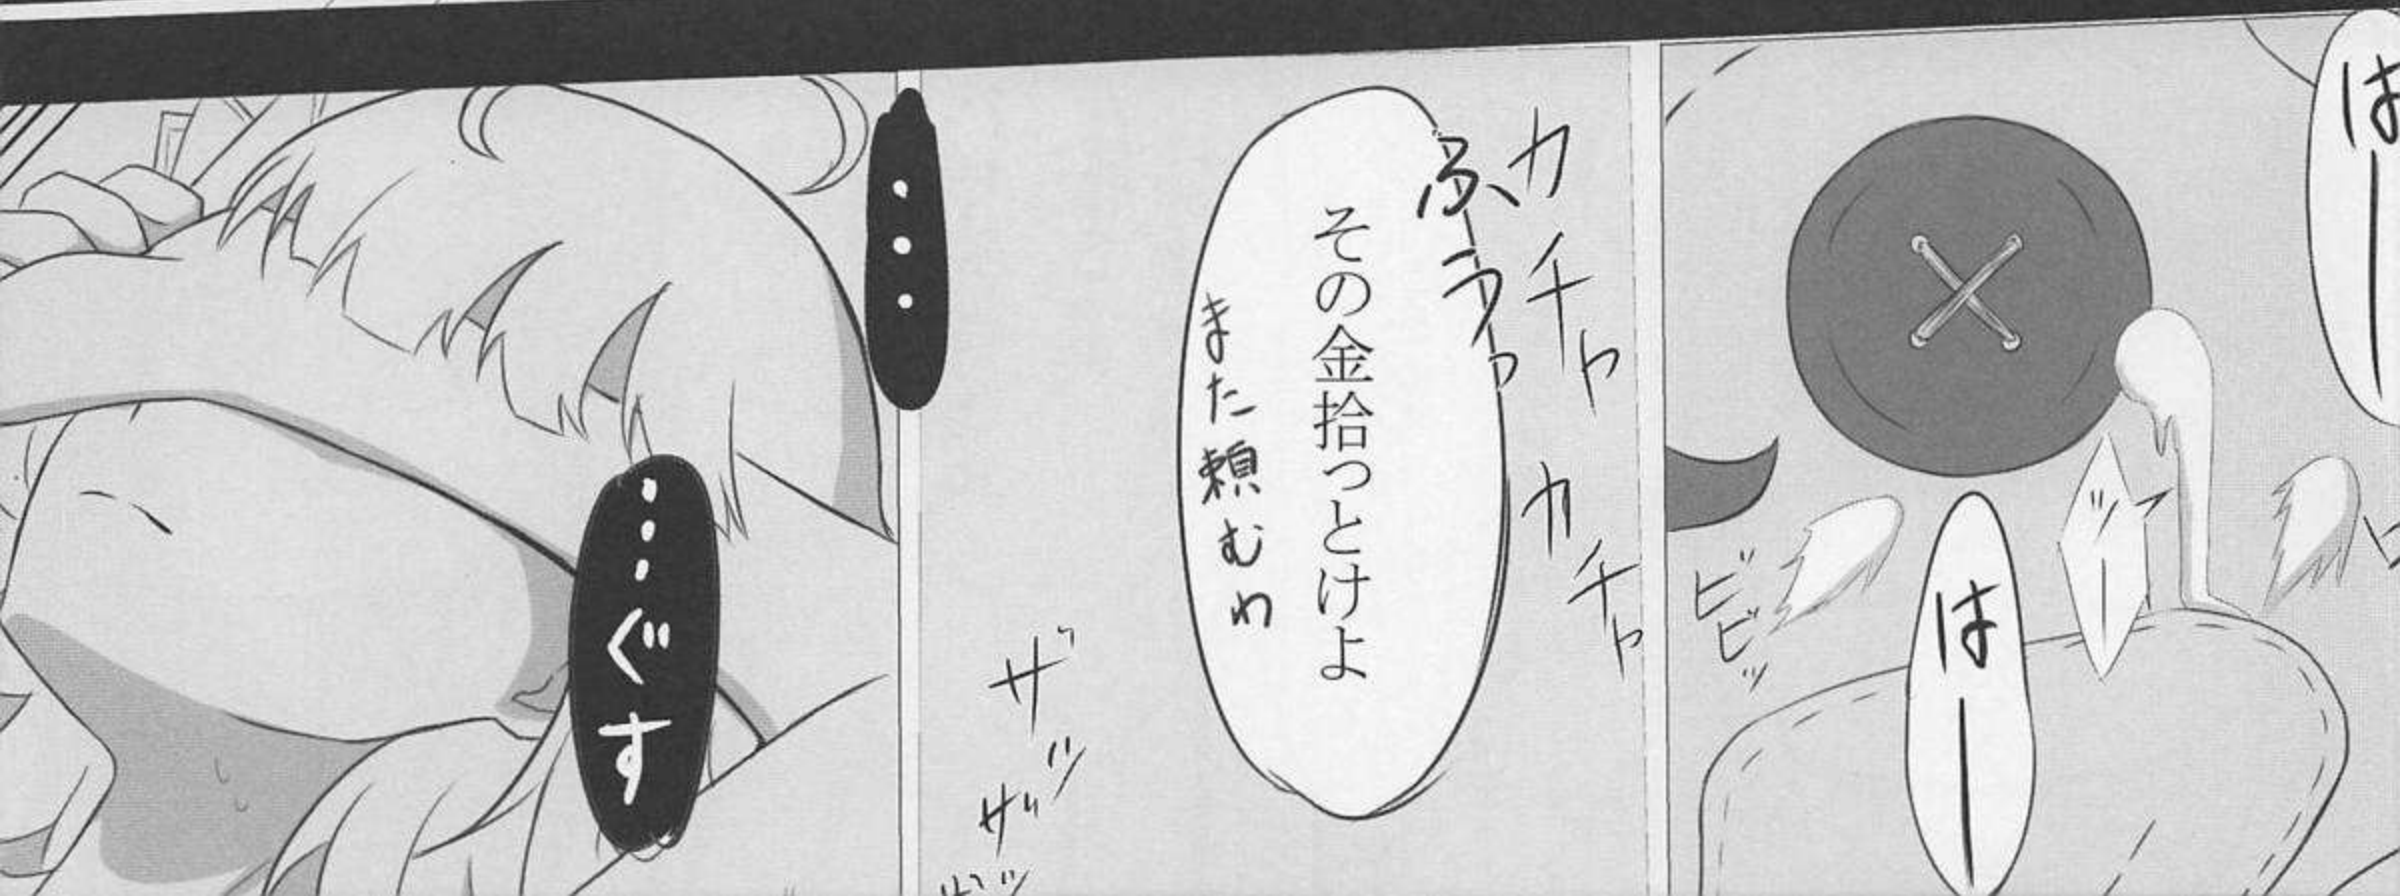 はー
ツー
はー
ビビッ
カチャ
カチャ
ふぅっ
その金拾っとけよ
また頼むわ
ザッ
ザッ
・・・
・・・ぐす